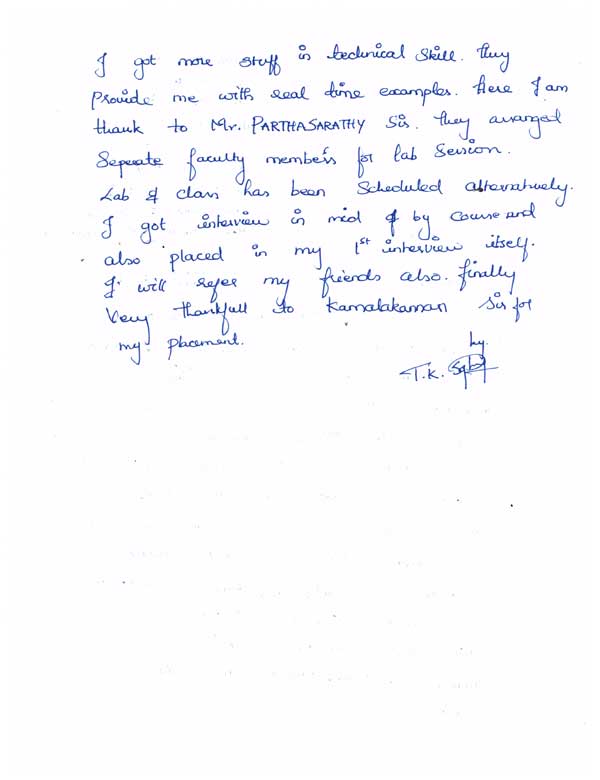 I got more stuff in technical skill. They
Provide me with real time examples. Here I am
thank to Mr. PARTHASARATHY Sir. They arranged
Seperate faculty members for lab Session.
Lab & class has been Scheduled alternatively.
I got interview in mid of by course and
also placed in my 1st interview itself.
I will refer my friends also. Finally
Very thankfull to Kamalakannan Sir for
my placement.
by.
T.K.